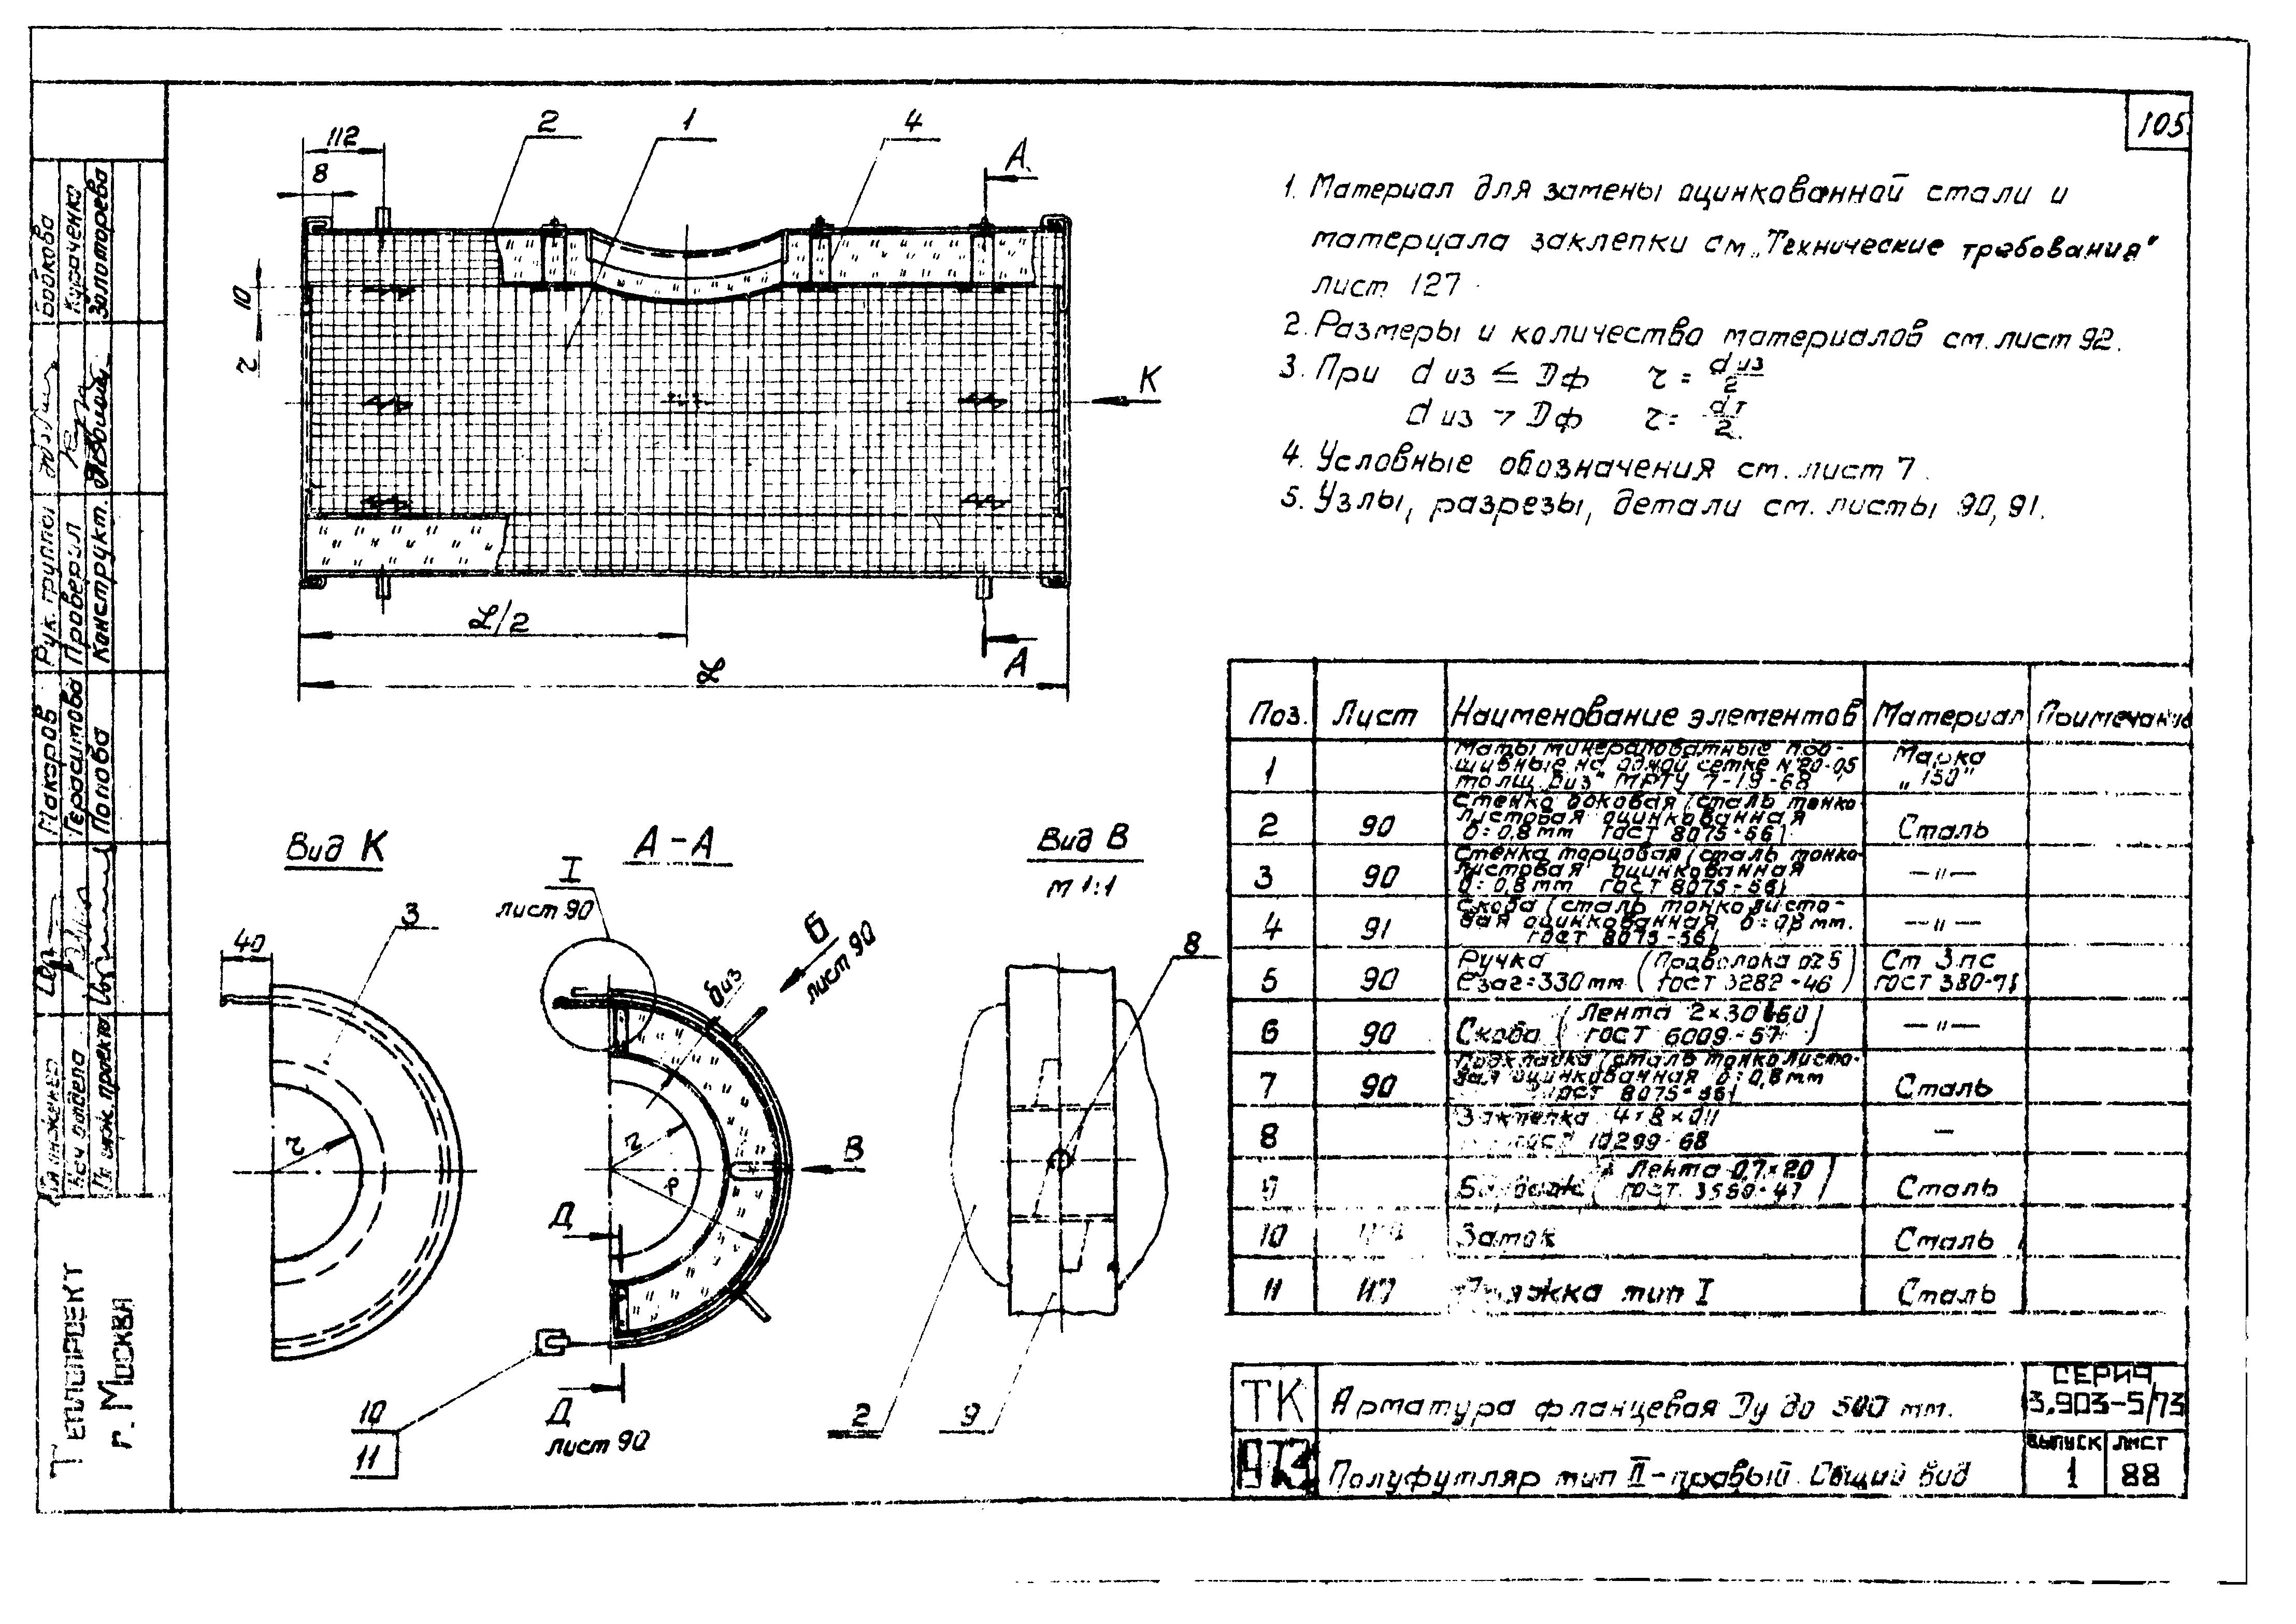 105
112
8
2
1
4
А
10
r
К
L/2
L
А
1. Материал для замены оцинкованной стали и
материала заклепки см. „Технические требования"
лист 127.
2. Размеры и количество материалов см. лист 92.
3. При d из ≤ Dф r = d из/2
d из > Dф r = dт/2
4. Условные обозначения см. лист 7.
5. Узлы, разрезы, детали см. листы 90, 91.
Поз. Лист Наименование элементов Материал Примечание
1 Маты минераловатные про-
шивные на одной сетке №20-0.5
толщ. δиз" МРТУ 7-19-68
Марка
„150"
2 90 Стенка боковая (сталь тонко-
листовая оцинкованная
δ=0,8мм ГОСТ 8075-56) Сталь
3 90 Стенка торцовая (сталь тонко-
листовая оцинкованная
δ=0,8мм ГОСТ 8075-56) —"—
4 91 Скоба (сталь тонколисто-
вая оцинкованная δ=0,8 мм.
ГОСТ 8075-56) —"—
5 90 Ручка (Проволока ∅5)
ℓзаг=330мм (ГОСТ 3282-46)
Ст 3пс
ГОСТ 380-71
6 90 Скоба (Лента 2×30
ГОСТ 6009-57) —"—
7 90 Подкладка (сталь тонколисто-
вая оцинкованная δ=0,8мм
ГОСТ 8075-56) Сталь
8 Заклепка 4×8
ГОСТ 10299-68 —
9 (Лента 0,7×20
ГОСТ 3560-47) Сталь
10 Замок Сталь
11 117 Пряжка тип I Сталь
Вид К
3
40
r
А-А
I
лист 90
Б
лист 90
δиз
r
В
Д
Д
лист 90
10
11
Вид В
М 1:1
8
2
9
ТК Арматура фланцевая Dу до 500 мм.
СЕРИЯ
3.903-5/73
1973 Полуфутляр тип II-правый. Общий вид
ВЫПУСК ЛИСТ
1 88
Бойкова
Кураченко
Золоторева
Рук. группы
Проверил
Конструкт.
Макаров
Герасимова
Попова
Гл. инженер
Нач. отдела
Гл. инж. проекта
Теплопроект
г. Москва